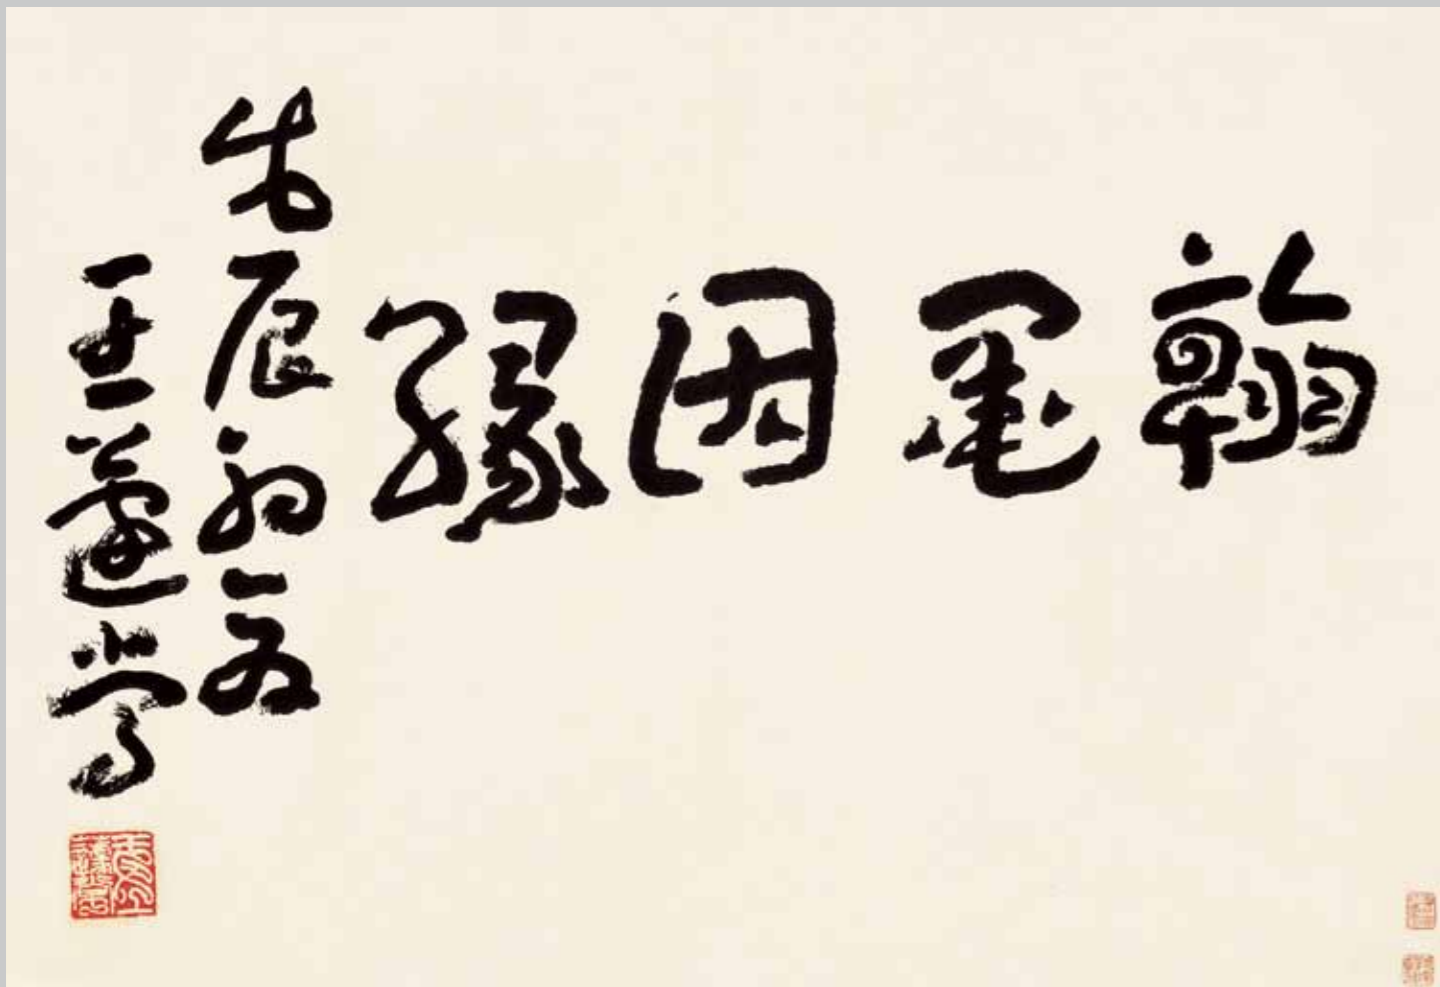 翰墨因緣
戊辰初夏
王蘧常